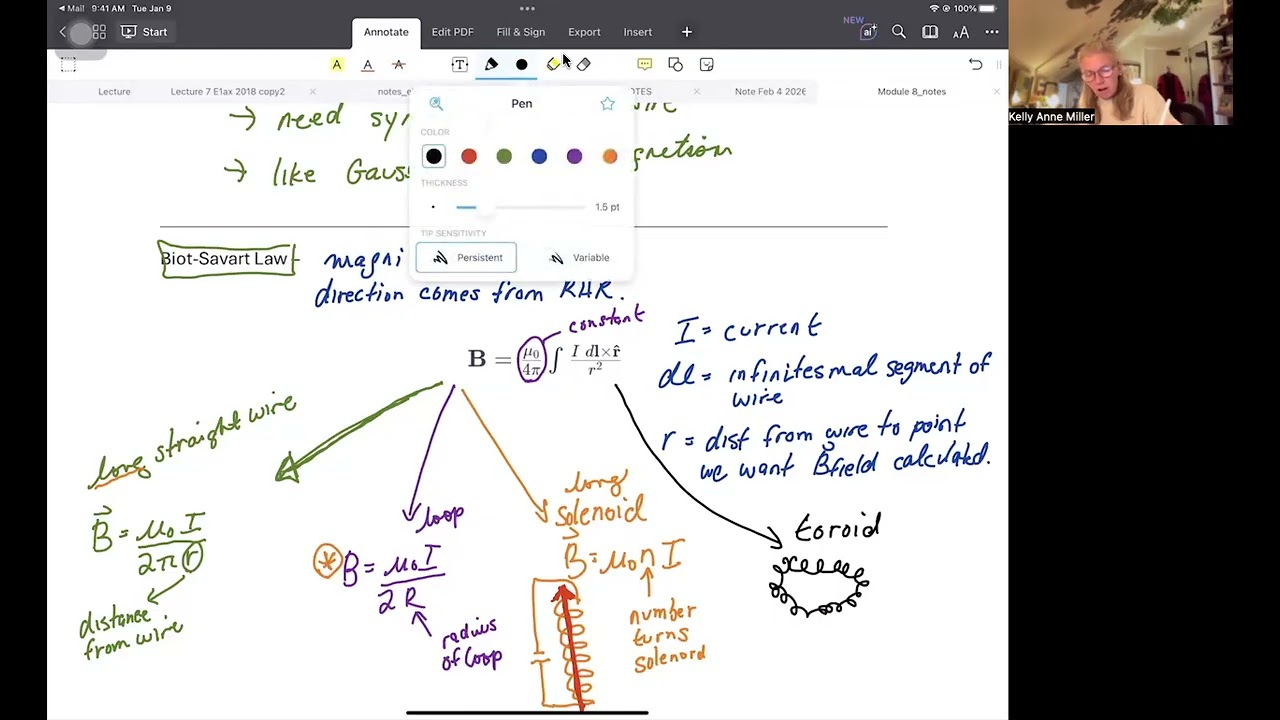 Mail 9:41 AM Tue Jan 9
100%
Start
Annotate
Edit PDF
Fill & Sign
Export
Insert
NEW
ai
AA
A A A T
Lecture
Lecture 7 E1ax 2018 copy2
notes_e
OTES
Note Feb 4 2026
Module 8_notes
Pen
COLOR
THICKNESS
1.5 pt
TIP SENSITIVITY
Persistent
Variable
Kelly Anne Miller
→ need sy
→ like Gaus
Biot-Savart Law - magni
direction comes from RHR.
constant
B = μ0/4π ∫ I dl×r̂/r²
I = current
dl = infinitesmal segment of
wire
r = dist from wire to point
we want Bfield calculated.
long straight wire
B = μ0 I / 2π r
distance
from wire
loop
* B = μ0 I / 2 R
radius
of loop
long
solenoid
B = μ0 n I
number
turns
solenord
toroid